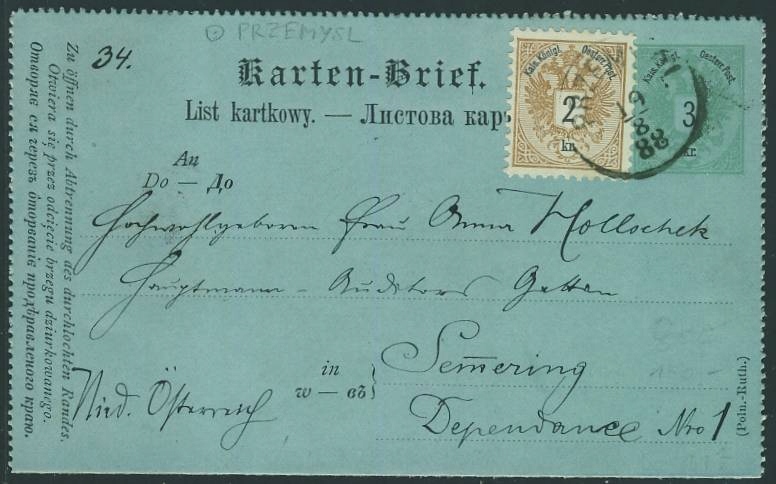 PRZEMYSL
34.
Karten-Brief.
List kartkowy. — Листова кар
Kais. Königl. Oesterr. Post.
2
kr.
Kais. Königl. Oesterr. Post.
3
kr.
19
88
An
Do — До
Hochwohlgeboren Frau Anna Hollschek
Hauptmann-Auditors Gattin
in
w — въ
Sem̅ering
Nied. Österreich
Dependance Nro 1
(Poln.-Ruth.)
Zu öffnen durch Abtrennung des durchlochten Randes.
Otwiera się przez odcięcie brzegu dziurkowanego.
Отворяє ся черезъ